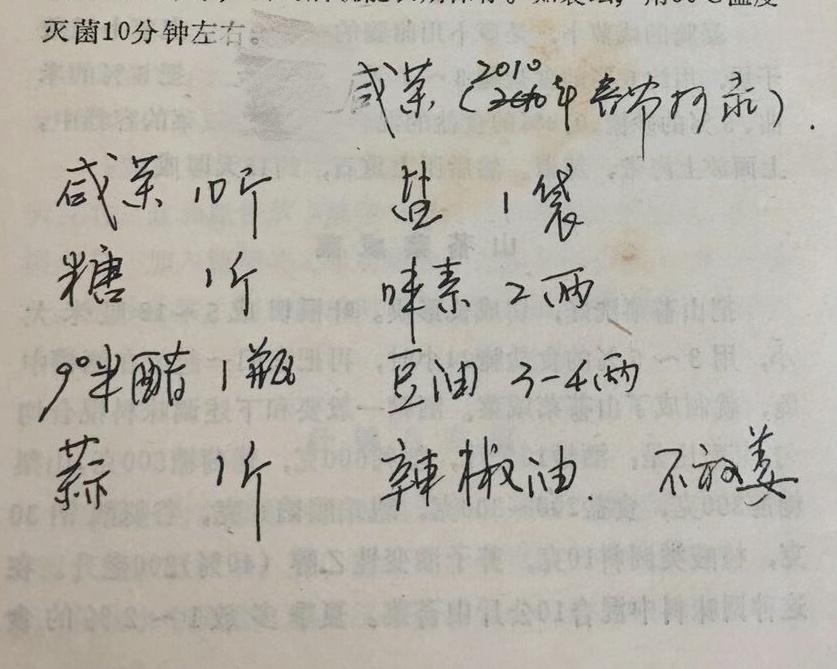 灭菌10分钟左右。
咸菜(2010年春节
咸菜 10斤 盐 1袋
糖 1斤 味素 2两
9°米醋 1瓶 豆油 3-4两
蒜 1斤 辣椒油. 不放姜